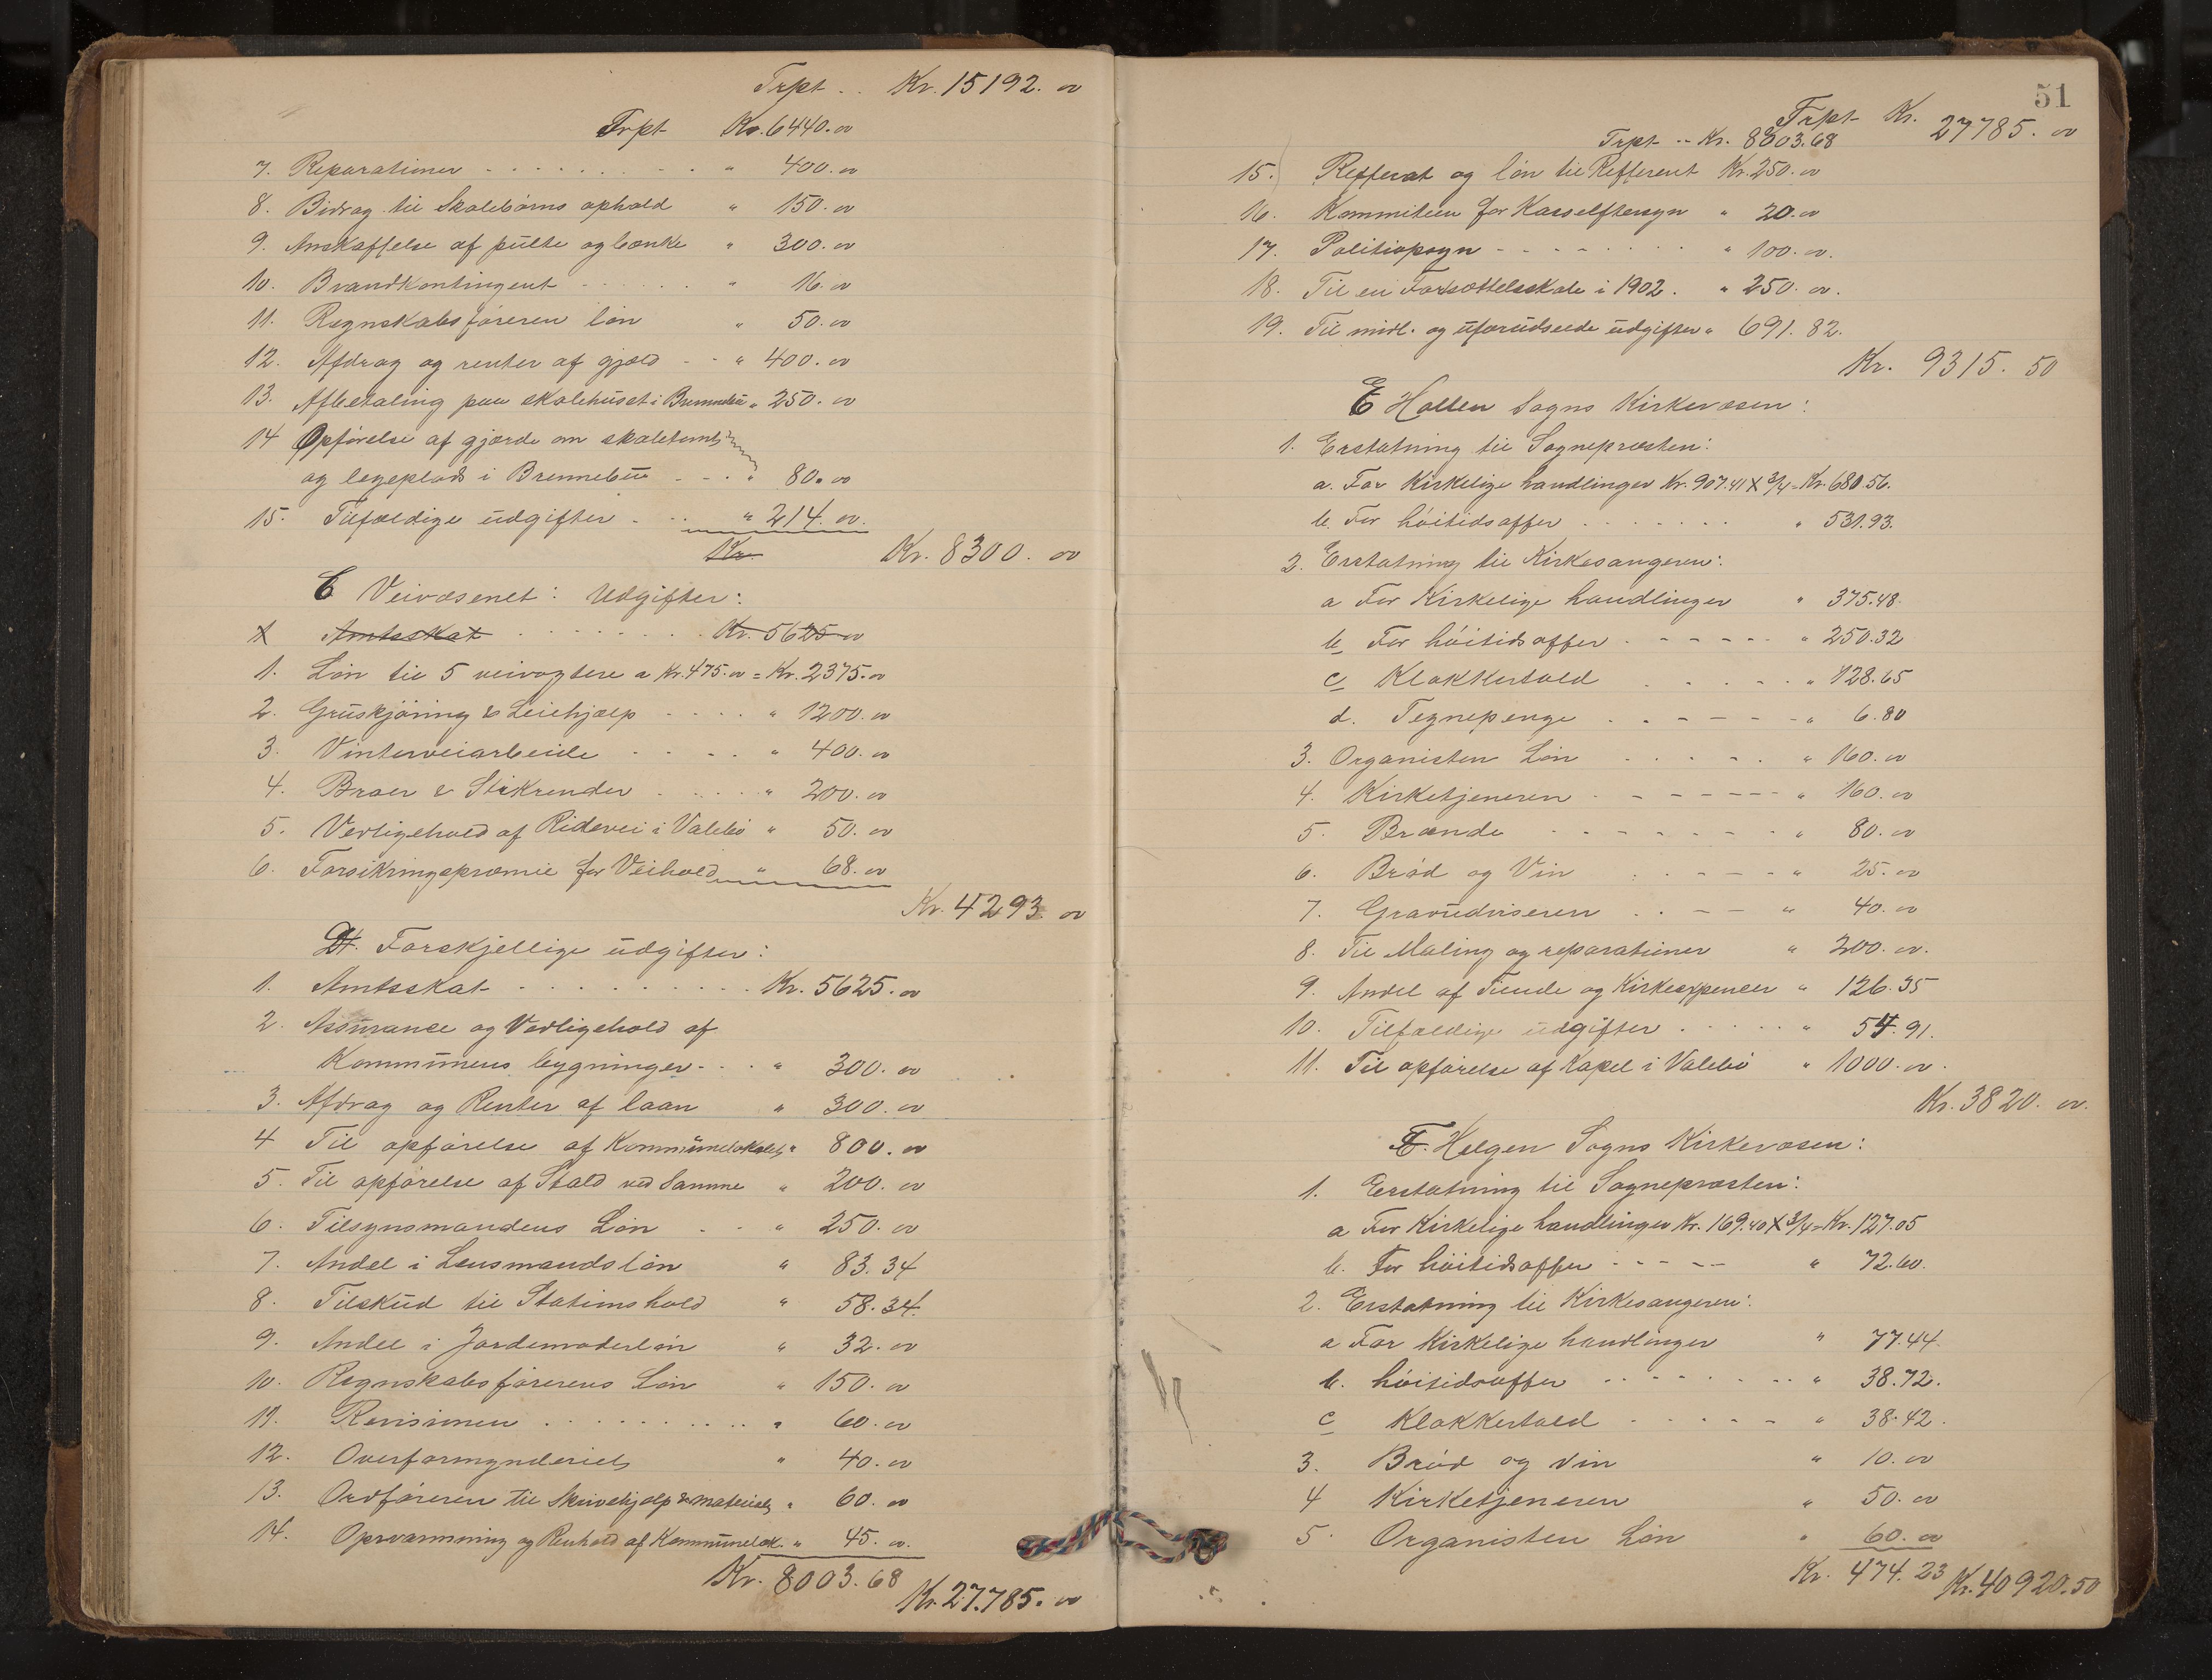 Trpt .. Kr. 15192. 00
Trpt Kr. 6440. 00
7. Reparationer " 400. 00
8. Bidrag til Skolebørns ophold " 150. 00
9. Anskaffelse af pulte og bænke " 300. 00
10. Brandkontingent " 16. 00
11. Regnskabsføreren løn " 50. 00
12. Afdrag og renter af gjæld " 400. 00
13. Afbetaling paa skolehuset i " 250. 00
14 Opførelse af gjærde om skoletomt
og legeplads i Brennebu " 80. 00
15. Tilfældige udgifter " 214. 00.
Kr. Kr. 8300. 00
C Veivæsenet: Udgifter:
1 Amtsskat Kr. 5625 00
1. Løn til 5 veivogtere a Kr. 475. 00 = Kr. 2375. 00
2. Gruskjøring & Leiehjælp " 1200. 00
3. Vinterveiarbeide " 400. 00
4. Broer & Stikrender " 200. 00
5. Vedligehold af Ridevei i Valebø " 50. 00
6. Forsikringspræmie for Veihold " 68. 00
Kr. 4293 00
D. Forskjellige udgifter:
1. Amtsskat Kr. 5625. 00
2. Assurance og Vedligehold af
Kommunens bygninger " 300. 00
3. Afdrag og Renter af laan " 300. 00
4 Til opførelse af Kommunelokalet " 800. 00
5. Til opførelse af Stald ved Samme " 200. 00
6. Tilsynsmandens Løn " 250. 00
7. Andel i Lensmandsløn " 83. 34
8. Tilskud til Stationshold " 58. 34.
9. Andel i Jordemoderløn " 32. 00
10. Regnskabsførerens Løn " 150. 00
11. Revisionen " 60. 00
12. Overformynderiet " 40. 00
13. Ordføreren til Skrivehjælp & materiel " 60. 00
14. Opvarmning og Renhold af Kommunelok. " 45. 00.
Kr. 8003. 68
Kr. 27.785. 00
51
Trpt Kr. 27785. 00
Trpt .. Kr. 8003.68
15. Refferat og løn til Refferent Kr. 250. 00
16. Kommiteen for Kasseftersyn " 20. 00
17. Politiopsyn " 100. 00.
18. Til en Fortsættelsskole i 1902. " 250. 00.
19. Til midl. og uforudseede udgifter " 691. 82.
Kr. 9315. 50
E Hollen Sogns Kirkevæsen:
1. Erstatning til Sognepræsten:
a. For Kirkelige handlinger Kr. 907.41 X 3/4 = Kr. 680.56.
b. For høitidsoffer " 531.93.
2. Erstatning til Kirkesangeren:
a For Kirkelige handlinger " 375.48.
b. For høitidsoffer " 250.32
c Klokkertold " 128.65
d. Tegnepenge " 6.80
3. Organisten Løn " 160. 00
4. Kirketjeneren " 160. 00
5. Brænde " 80. 00
6. Brød og Vin " 25. 00
7. Gravudviseren " 40. 00
8. Til Maling og reparationer " 200. 00.
9. Andel af Tiende og Kirkeexpencer " 126.35
10. Tilfældige udgifter " 54.91.
11. Til opførelse af Kapel i Valebø " 1000. 00.
Kr. 3820. 00.
F. Helgen Sogns Kirkevæsen:
1. Erstatning til Sognepræsten:
a For Kirkelige handlinger Kr. 169.40 X 3/4 = Kr. 127.05
b. For høitidsoffer " 72.60.
2. Erstatning til Kirkesangeren:
a For Kirkelige handlinger " 77.44.
b. høitidsoffer " 38.72.
c Klokkertold " 38.42.
3. Brød og Vin " 10. 00
4 Kirketjeneren " 50. 00
5. Organisten Løn " 60. 00
Kr. 474.23 Kr. 40920.50